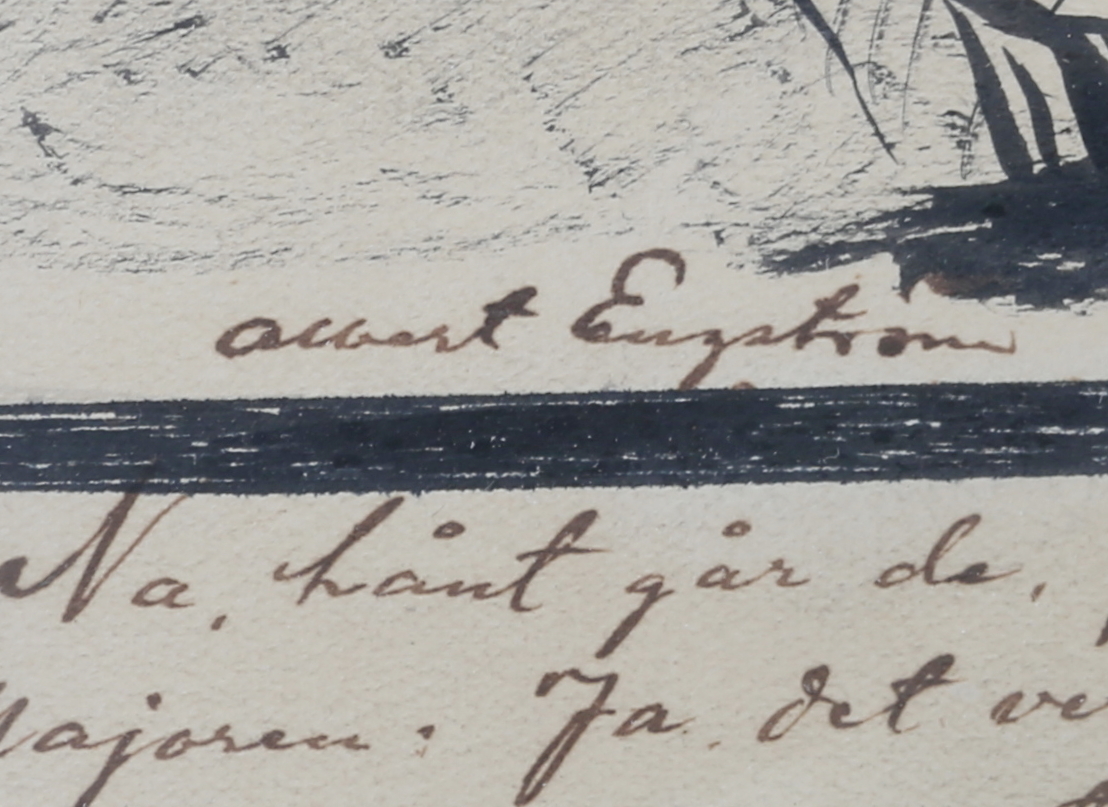 Albert Engström
Na, hånt går de,
Majoren: Ja det